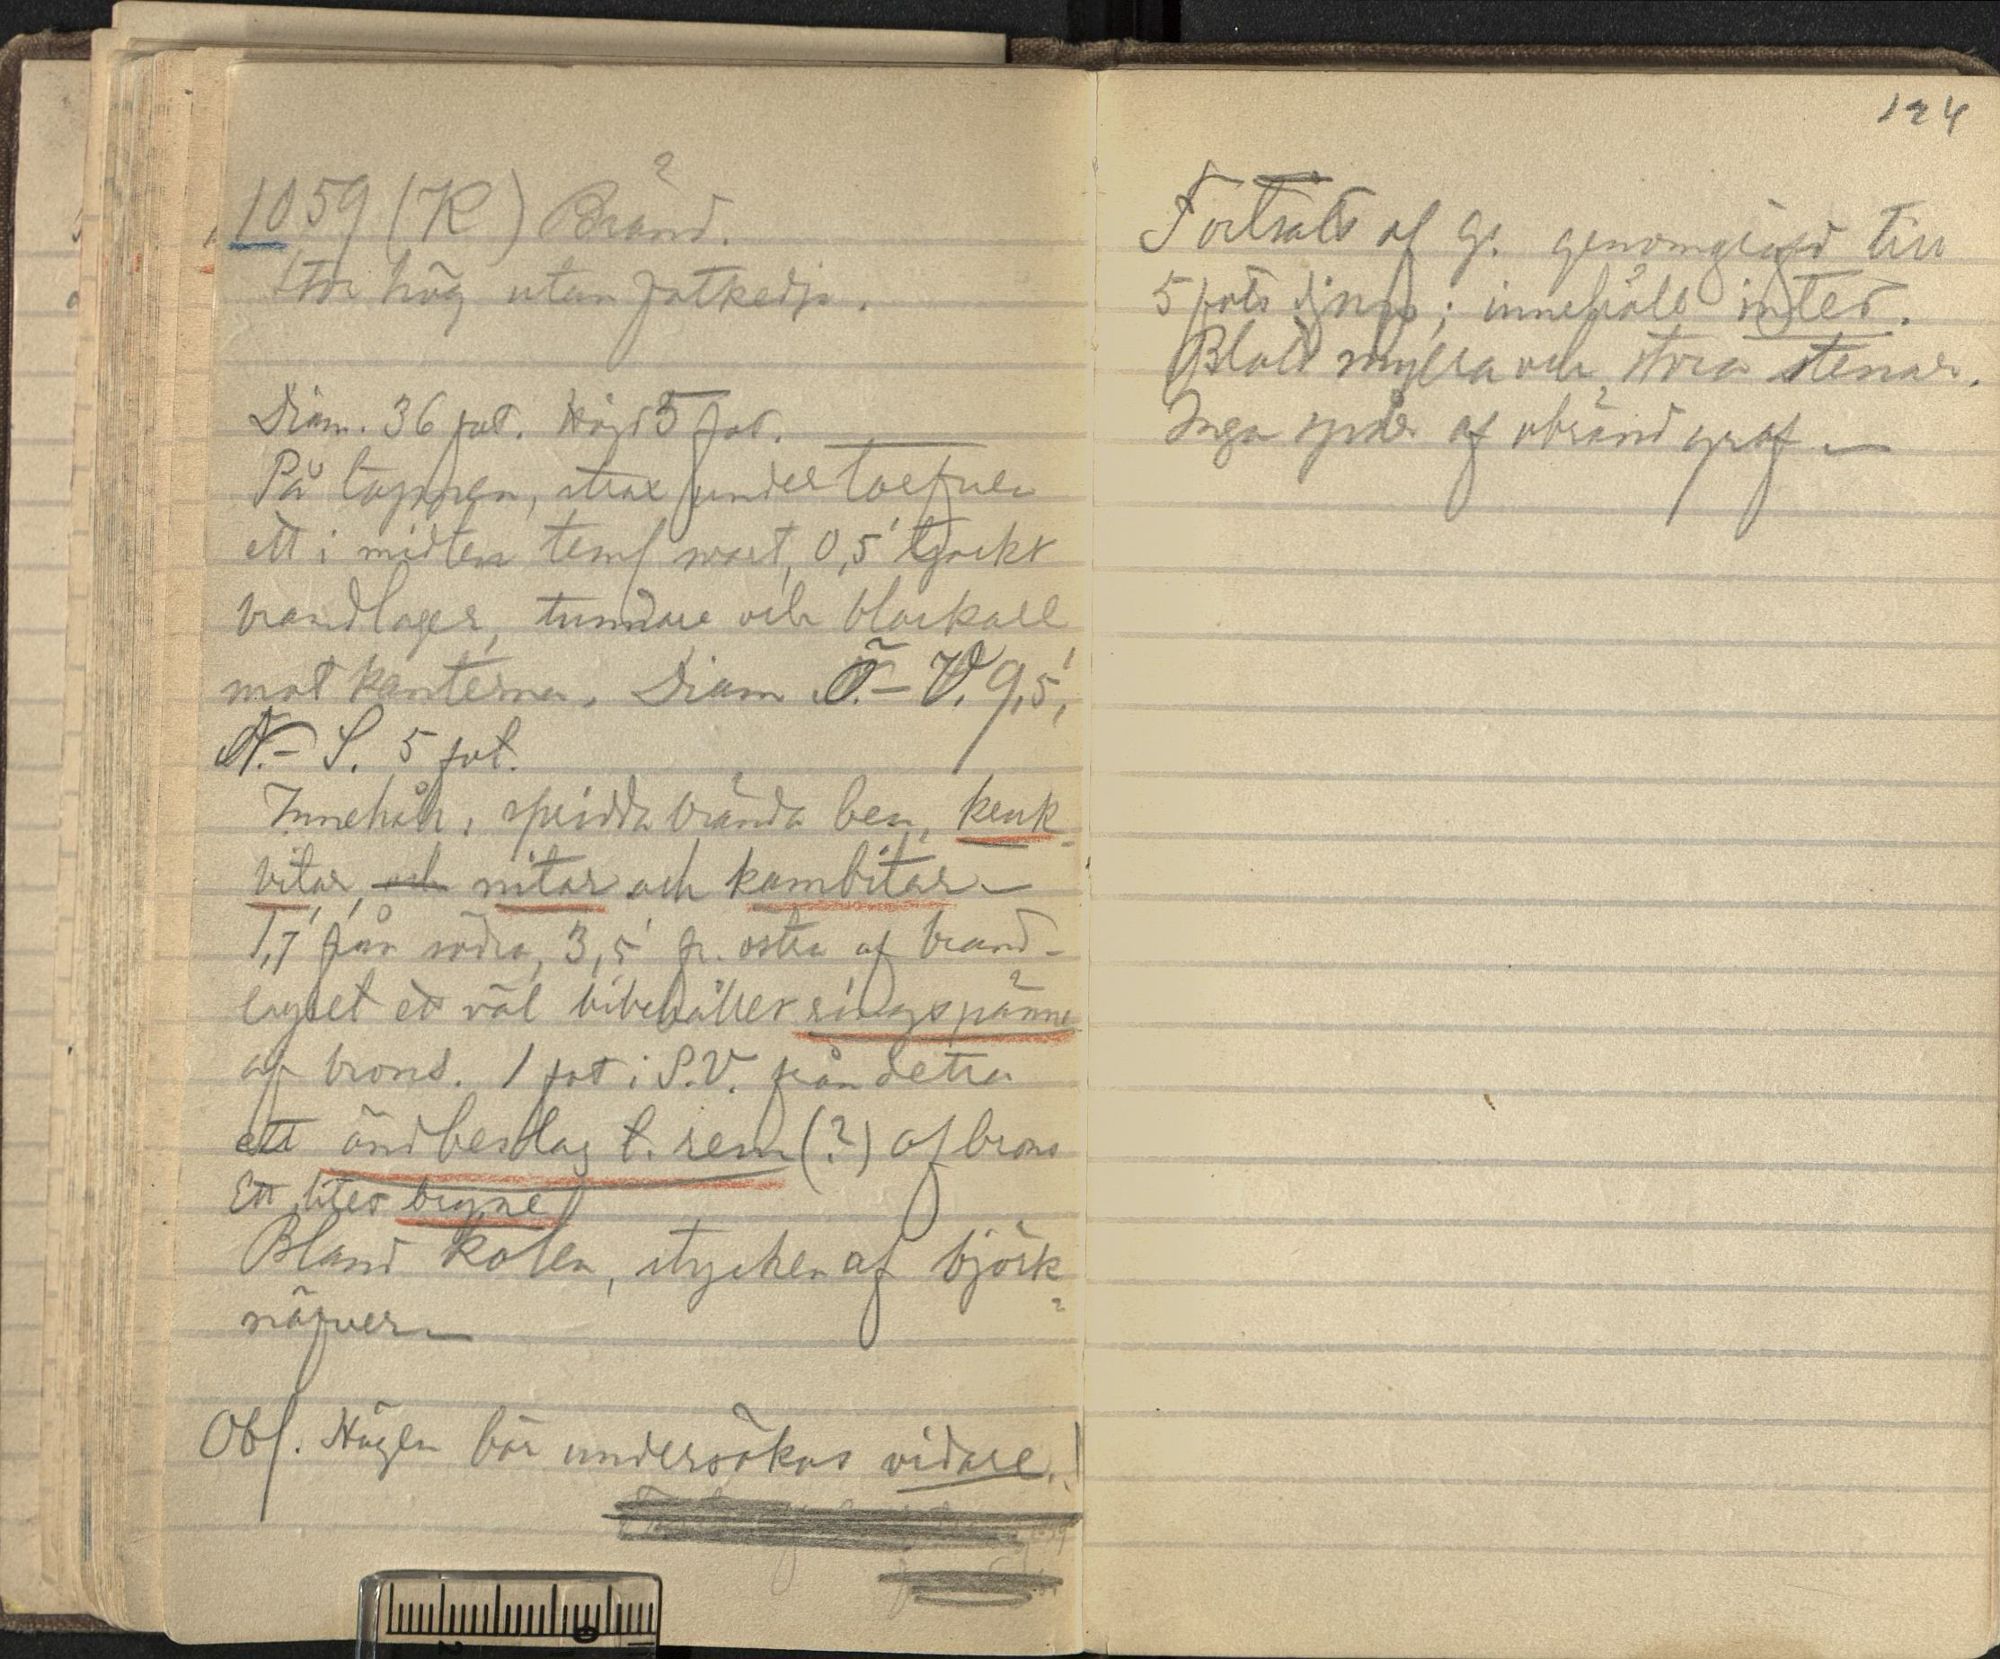 1059 (K) Bränd.
Stor hög utan fotkedja.
Diam. 36 fot. Höjd 5 fot.
På toppen, strax under torfven
ett i midten teml. svart, 0,5' tjockt
brandlager, tunnare och blackare
mot kanterna. Diam Ö.– V. 9,5',
N.– S. 5 fot.
Innehåll: spridda brända ben, kruk-
bitar, och nitar och kambitar –
1,7' från södra, 3,5' fr. östra af brand-
lagret ett väl bibehållet ringspänne
af brons. 1 fot i S.V. från detta
ett ändbeslag t. rem (?) af brons
Ett litet bryne
Bland kolen, stycken af björk-
näfver –
Obs. Högen bör undersökas vidare.!
124
Fortsatts af G. genomgräfd till
5 fots djup; innehöll intet.
Blott mylla och stora stenar.
Inga spår af obränd graf –